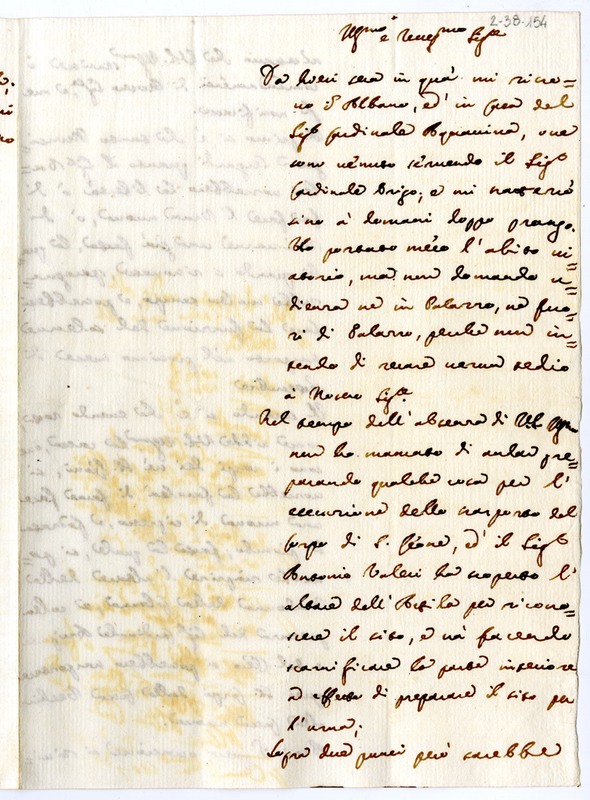 2-38-154
Ill.mo e Rev.mo Sig.re
Da hieri sera in quà mi ritro=
vo in Albano, ed in casa del
Sig.r Cardinale Aquaviva, ove
sono venuto servendo il Sig.r
Cardinale Origo; e mi tratterrò
sino à domani doppo pranzo.
Ho portato meco l'abito vi=
atorio, mà non domando u=
dienza nè in Palazzo, nè fuo=
ri di Palazzo, perche non in=
tendo di recare verun tedio
à Nostro Sig.re
Nel tempo dell'absenza di V.S. Ill.ma
non ho mancato di andar pre=
parando qualche cosa per l'
esecuzione dello trasporto del
Corpo di S. Leone, ed il Sig.r
Antonio Valeri ha scoperto l'
altare dell'Attila per ricono=
scere il sito, e và facendo
scarnificare la parte inferiore
ad effetto di preparare il sito per
l'urna;
Sopra due punti però sarebbe